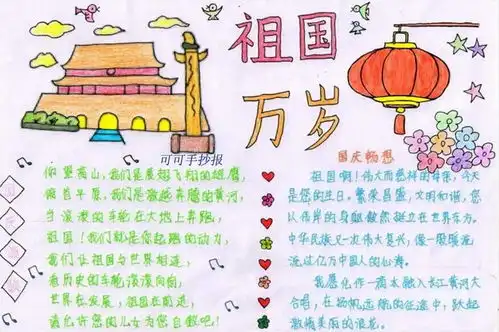 祖国
万岁
可可手抄报
国庆畅想
你望高山，我们是展翅飞翔的雄鹰，
俯首平原，我们是激越奔腾的黄河，
当滚滚的车轮在大地上奔跑，
祖国！我们就是你起跑的动力，
我们让祖国与世界在
看历史的车轮滚滚向前，
世界在发展，祖国在前进，
请允许您的儿女为您自豪吧！
祖国啊！伟大而慈祥的母亲，今天
是您的生日。繁荣昌盛，文明和谐，您
以伟岸的身躯傲然挺立在世界东方。
中华民族又一次伟大复兴，像一股暖流
流过亿万中国人的心海。
我愿化作一滴水融入长江黄河大
合唱，在扬帆远航的征途中，跃起
激情美丽的浪花。